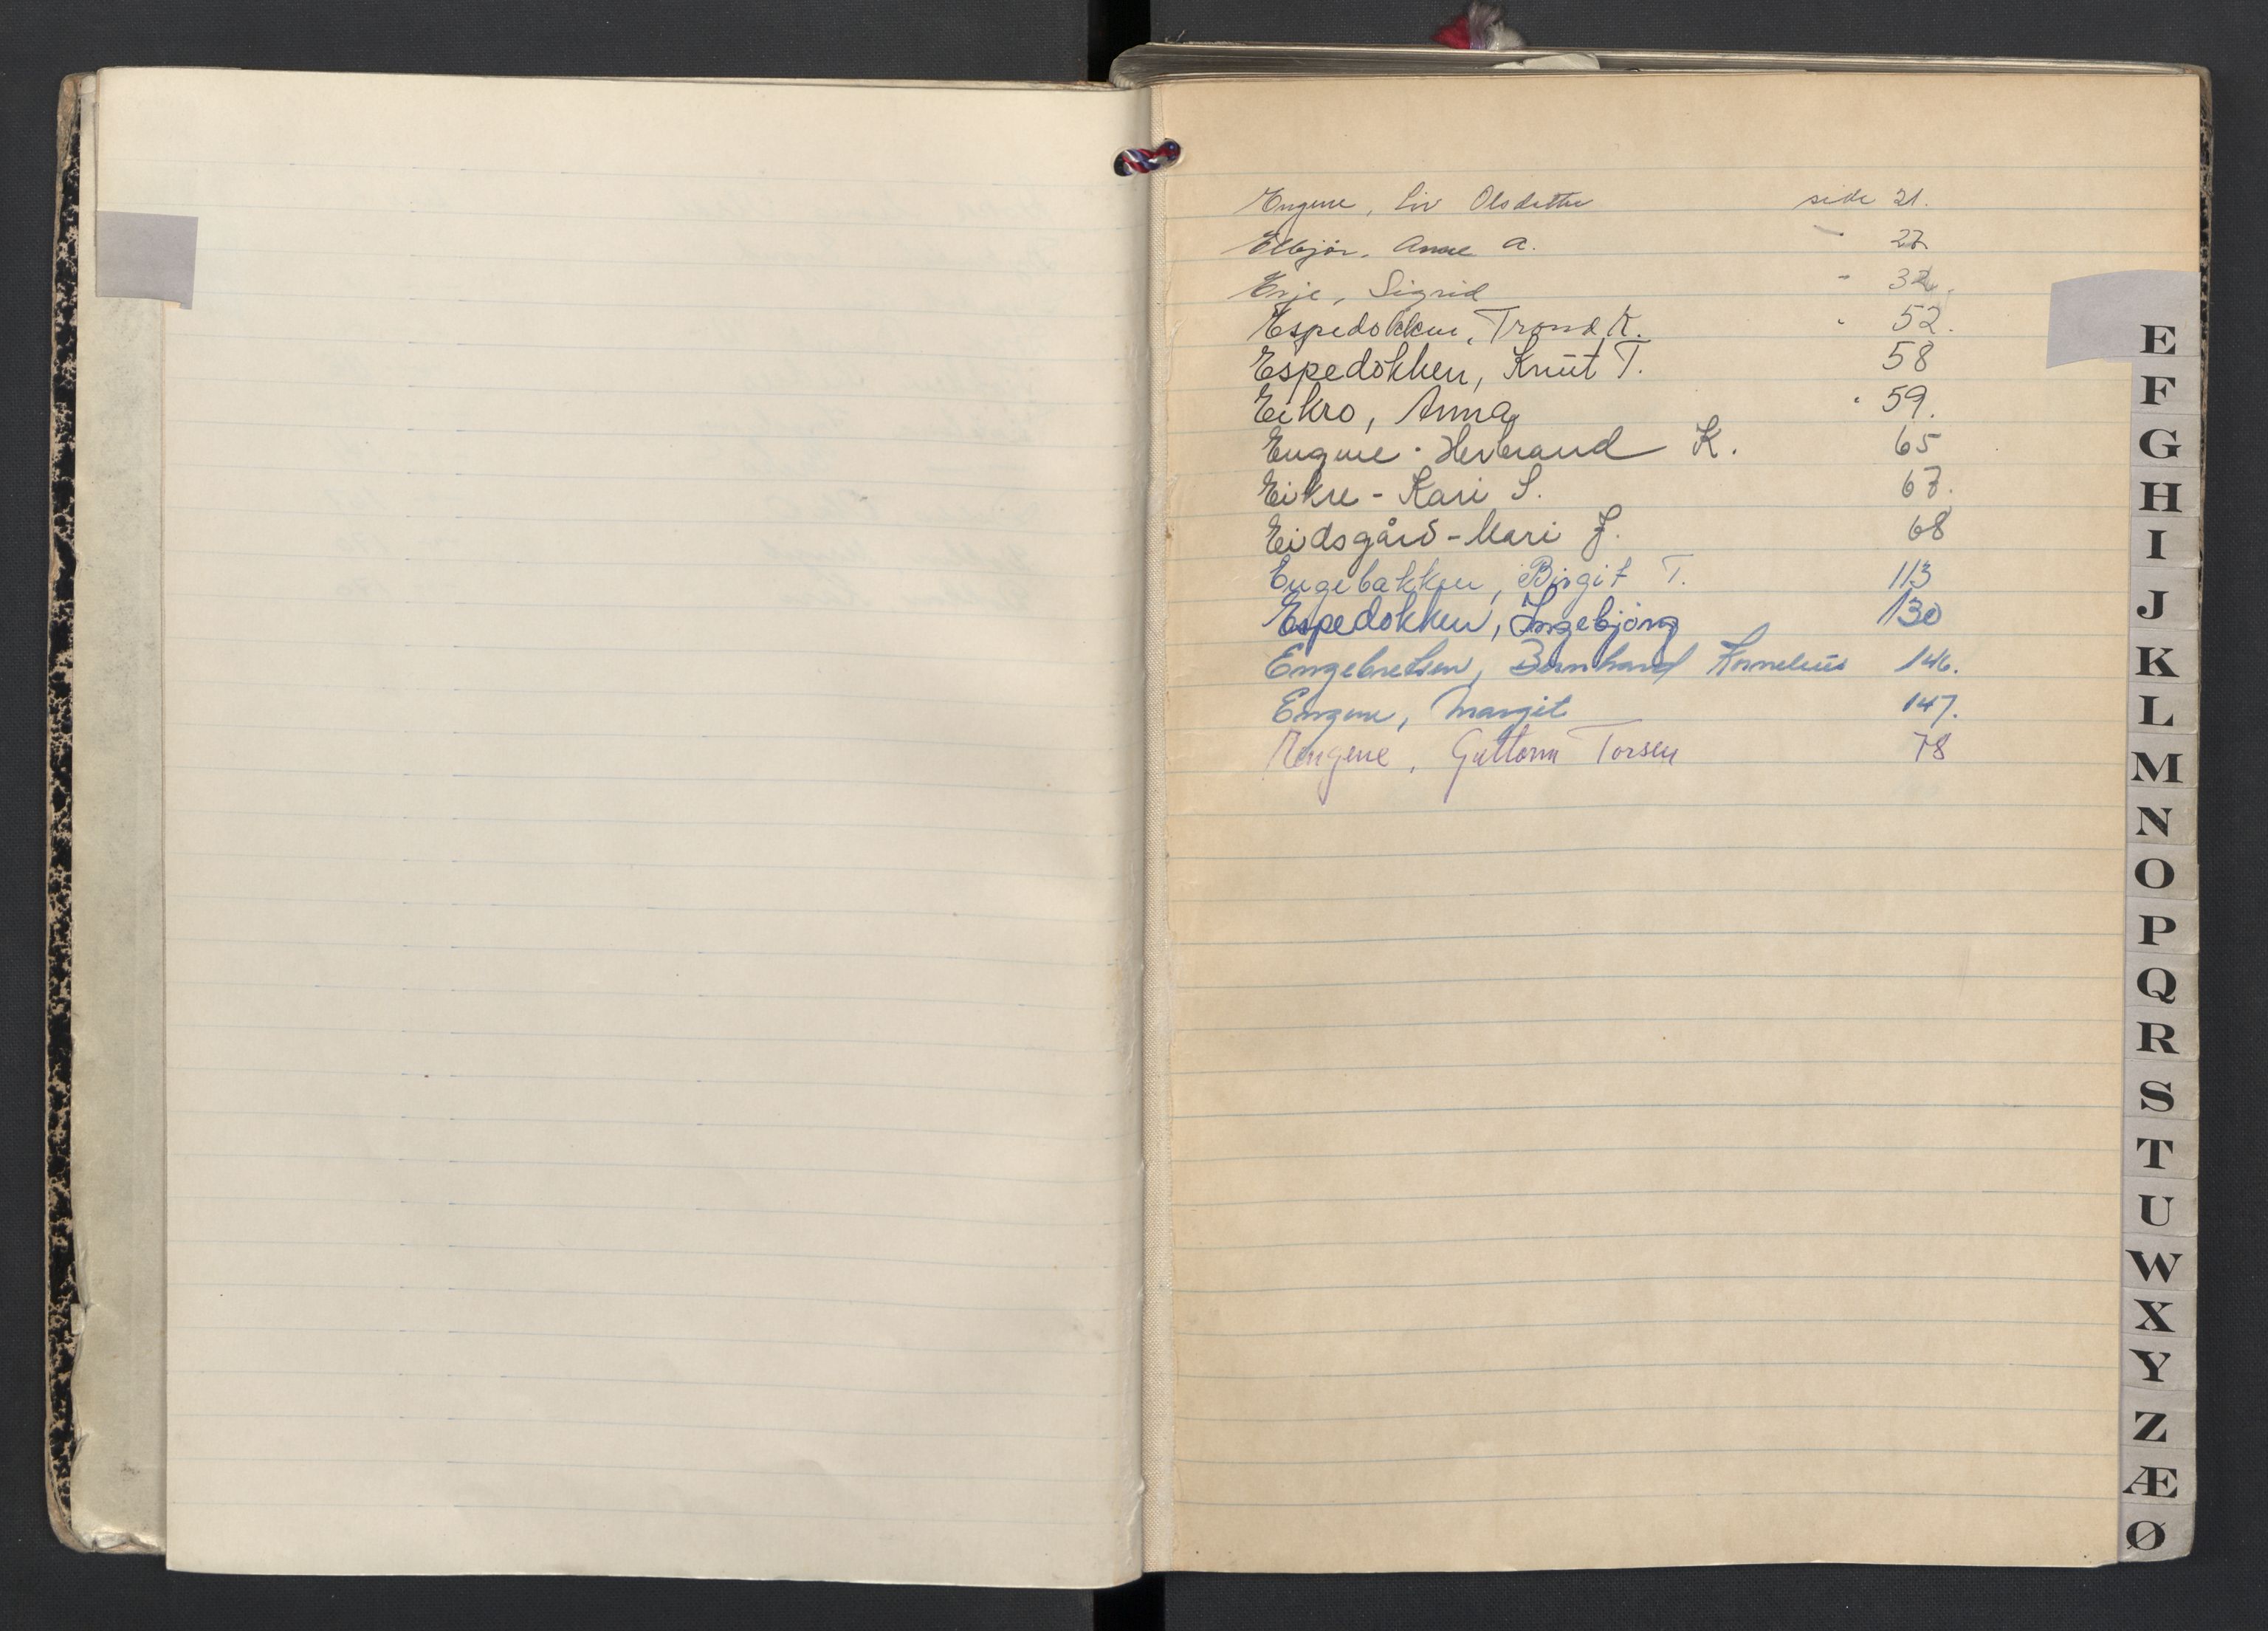 Engene, Liv Olsdatter side 21.
Elbjør, Anne A. " 27.
Erje, Sigrid " 32.
Espedokken, Trond K. " 52.
Espedokken, Knut T. 58
Eikro, Anna " 59.
Engene - Herbrand K. 65
Eikre - Kari S. 67.
Eidsgård - Mari J. 68
Engebakken, Birgit T. 113
Espedokken, Ingebjörg 130
Engebretsen, Bernhard Kornelius 146.
Engene, Margit 147.
Engene, Guttorm Torsen 78
E
F
G
H
I
J
K
L
M
N
O
P
Q
R
S
T
U
W
X
Y
Z
Æ
Ø